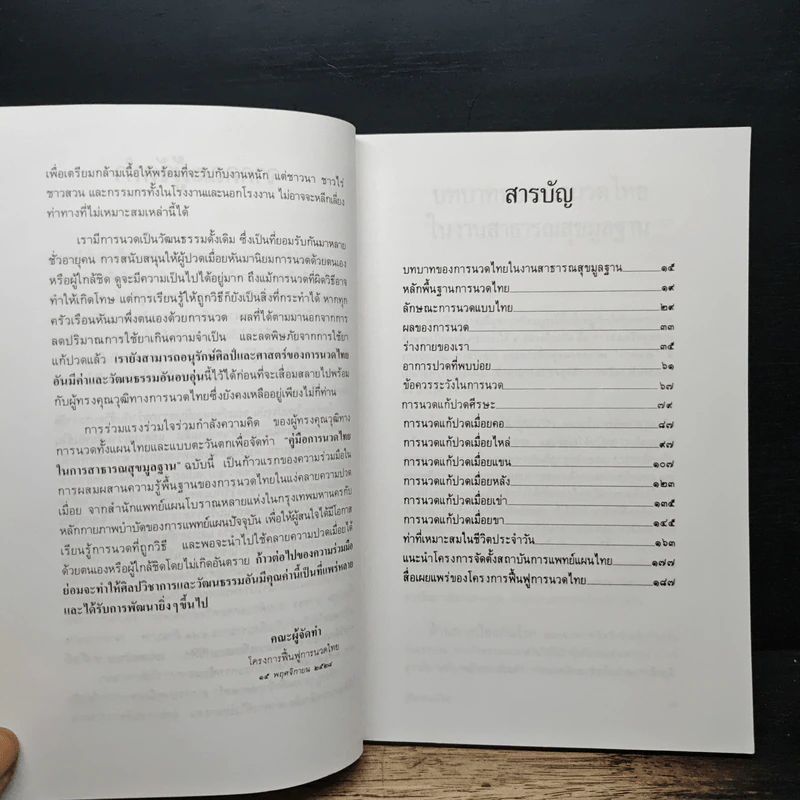 เพื่อเตรียมกล้ามเนื้อให้พร้อมที่จะรับกับงานหนัก แต่ชาวนา ชาวไร่
ชาวสวน และกรรมกรทั้งในโรงงานและนอกโรงงาน ไม่อาจจะหลีกเลี่ยง
ท่าทางที่ไม่เหมาะสมเหล่านี้ได้
เรามีการนวดเป็นวัฒนธรรมดั้งเดิม ซึ่งเป็นที่ยอมรับกันมาหลาย
ชั่วอายุคน การสนับสนุนให้ผู้ปวดเมื่อยหันมานิยมการนวดด้วยตนเอง
หรือผู้ใกล้ชิด ดูจะมีความเป็นไปได้อยู่มาก ถึงแม้การนวดที่ผิดวิธีอาจ
ทำให้เกิดโทษ แต่การเรียนรู้ให้ถูกวิธีก็ยังเป็นสิ่งที่กระทำได้ หากทุก
ครัวเรือนหันมาพึ่งตนเองด้วยการนวด ผลที่ได้ตามมานอกจากการ
ลดปริมาณการใช้ยาเกินความจำเป็น และลดพิษภัยจากการใช้ยา
แก้ปวดแล้ว เรายังสามารถอนุรักษ์ศิลป์และศาสตร์ของการนวดไทย
อันมีค่าและวัฒนธรรมอันอบอุ่นนี้ไว้ได้ก่อนที่จะเสื่อมสลายไปพร้อม
กับผู้ทรงคุณวุฒิทางการนวดไทยซึ่งยังคงเหลืออยู่เพียงไม่กี่ท่าน
การร่วมแรงร่วมใจร่วมกำลังความคิด ของผู้ทรงคุณวุฒิทาง
การนวดทั้งแผนไทยและแบบตะวันตกเพื่อจัดทำ "คู่มือการนวดไทย
ในการสาธารณสุขมูลฐาน" ฉบับนี้ เป็นก้าวแรกของความร่วมมือใน
การผสมผสานความรู้พื้นฐานของการนวดไทยในแง่คลายความปวด
เมื่อย จากสำนักแพทย์แผนโบราณหลายแห่งในกรุงเทพมหานครกับ
หลักกายภาพบำบัดของการแพทย์แผนปัจจุบัน เพื่อให้ผู้สนใจได้มีโอกาส
เรียนรู้การนวดที่ถูกวิธี และพอจะนำไปใช้คลายความปวดเมื่อยได้
ด้วยตนเองหรือผู้ใกล้ชิดโดยไม่เกิดอันตราย ก้าวต่อไปของความร่วมมือ
ย่อมจะทำให้ศิลปวิชาการและวัฒนธรรมอันมีคุณค่านี้เป็นที่แพร่หลาย
และได้รับการพัฒนายิ่งๆ ขึ้นไป
คณะผู้จัดทำ
โครงการฟื้นฟูการนวดไทย
๑๕ พฤศจิกายน ๒๕๒๘
สารบัญ
บทบาทของการนวดไทยในงานสาธารณสุขมูลฐาน ๑๕
หลักพื้นฐานการนวดไทย ๑๙
ลักษณะการนวดแบบไทย ๒๙
ผลของการนวด ๓๓
ร่างกายของเรา ๓๕
อาการปวดที่พบบ่อย ๖๑
ข้อควรระวังในการนวด ๖๗
การนวดแก้ปวดศีรษะ ๗๙
การนวดแก้ปวดเมื่อยคอ ๘๗
การนวดแก้ปวดเมื่อยไหล่ ๙๗
การนวดแก้ปวดเมื่อยแขน ๑๐๗
การนวดแก้ปวดเมื่อยหลัง ๑๒๓
การนวดแก้ปวดเมื่อยเข่า ๑๓๕
การนวดแก้ปวดเมื่อยขา ๑๔๕
ท่าที่เหมาะสมในชีวิตประจำวัน ๑๖๓
แนะนำโครงการจัดตั้งสถาบันการแพทย์แผนไทย ๑๗๗
สื่อเผยแพร่ของโครงการฟื้นฟูการนวดไทย ๑๘๗